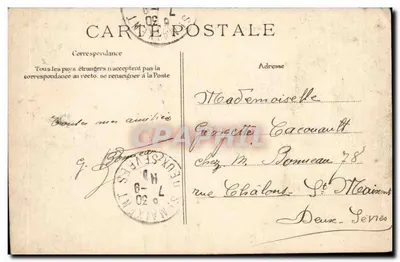 CARTE POSTALE
Correspondance
Tous les pays étrangers n'acceptent pas la
correspondance au recto, se renseigner à la Poste
Adresse
Toutes mes amitiés
G. Bonneau
Mademoiselle
Georgette Cacouault
chez M. Bonneau 78
rue Châlons St Maixent
Deux-Sèvres
ST MAIXENT
DEUX-SÈVRES